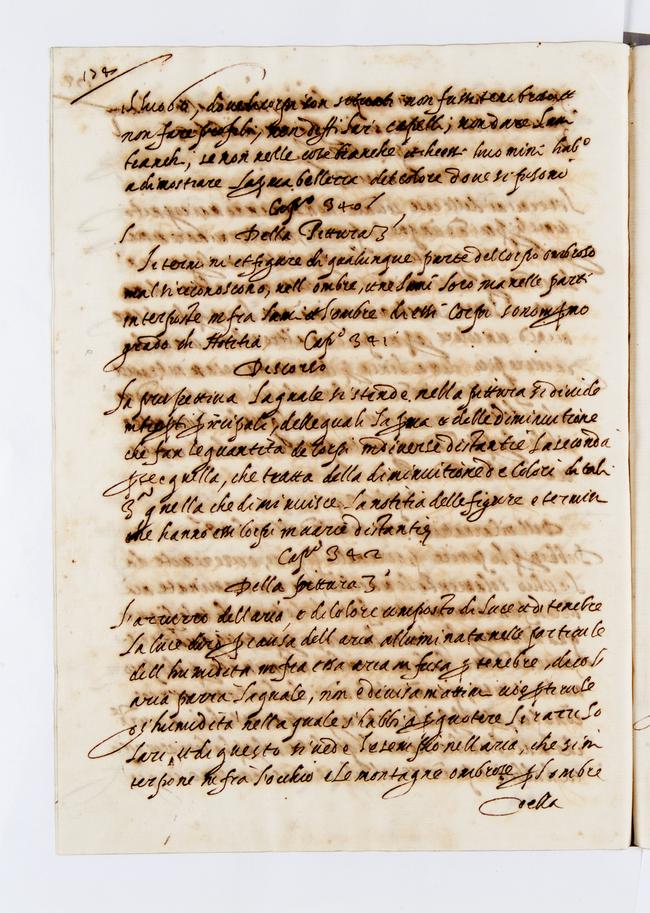 138
luoghi, dove li corpi son situati non fussi tenebroso et
non fare profili, non diffilar i capelli; non dare lumi
bianchi, se non nelle cose bianche et che essi lumi mi hab.º
a dimostrare la pma bellezza del colore dove si fusono
Cap.º 340
Della Pittura 3
Li termini et figure di qualunque parte del corpo ombroso
mal si riconoscono, nell ombre, et ne lumi loro ma nelle parti
interposte infra lumi et l'ombre di essi corpi sono in pmo
grado di Notitia Cap.º 341
Discorso
La prospettiva la quale si stende, nella pittura si divide
in tre parti principali, delle quali la pma e della diminuitione
che fan le quantita de corpi in diverse distantie la seconda
p.te e quella, che tratta della diminuitione de colori di tali
3ª quella che diminuisce la notitia delle figure e termini
che hanno essi corpi in varie distantie
Cap.º 342
Della pittura 3
L'azurro dell aria, e di colore composto di luce et di tenebre
La luce dico p causa dell aria alluminata nelle particule
dell humidita infra essa aria infusa p tenebre, dico l
aria pura la quale, non e divisa in attimi
humidita nella quale s'habbi a pquotere li razzi so
lari, et di questo si vede lo esempio nell aria, che s in
terpone infra l'occhio e le montagne ombrose p l ombre
della